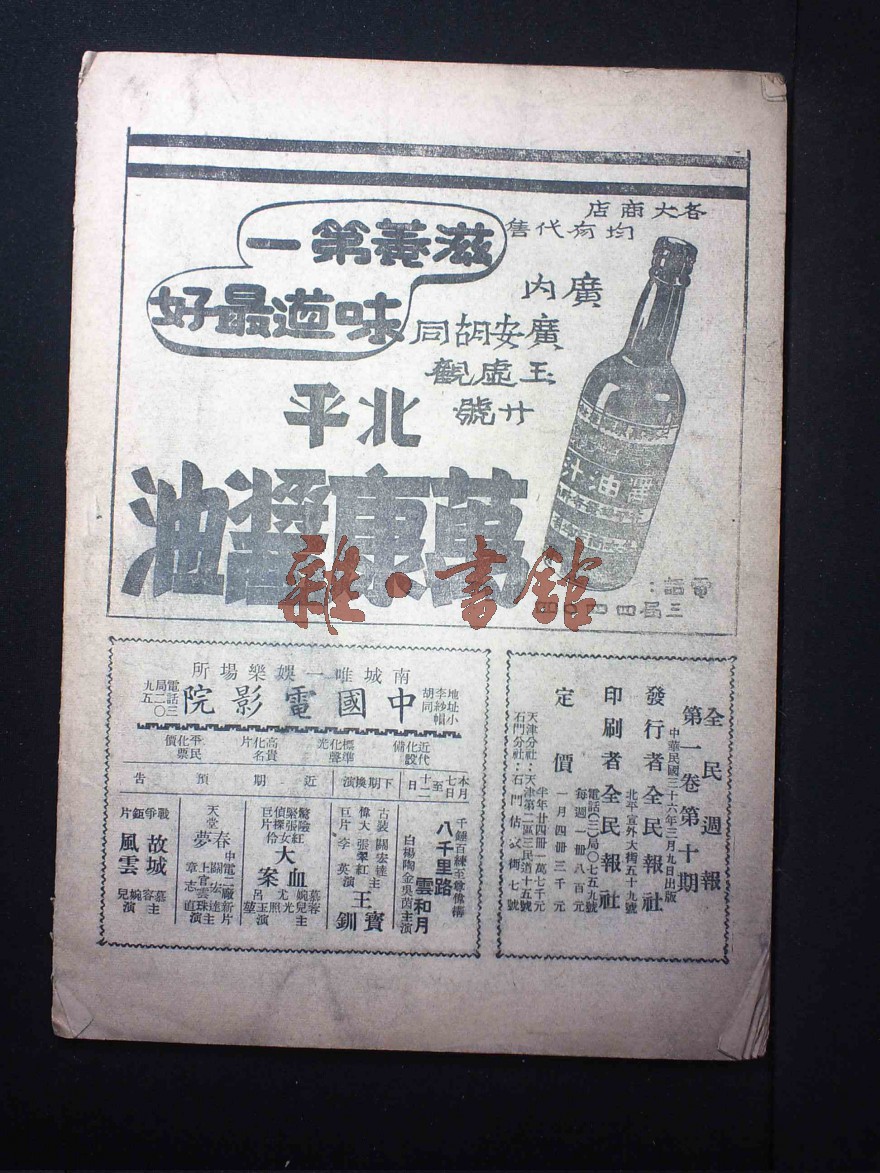 各大商店
均有代售
廣內
廣安胡同
玉虛觀
廿號
滋養第一
味道最好
北平
萬康醬油
油汁
電話：
三局四四〇四
雜·書館
全民週報
第一卷第十期
中華民國三十六年三月九日出版
發行者全民報社
北平宣外大街五十九號
印刷者全民報社
電話(三)局〇七五九號
定價
每週一冊八百元
一月四冊三千元
半年廿四冊一萬七千元
天津分社：天津第二區三民道十五號
石門分社：石門估衣街七號
南城唯一娛樂場所
地址小李紗帽胡同
中國電影院
電話三局二〇九五
近代化設備
標準化聲光
高貴化名片
平民化票價
本月七日至十二日
下期換演
近期預告
千錘百練至尊偉構
八千里路雲和月
白楊陶金吳茵主演
古裝偉大巨片
關宏達張翠紅李英主演
寶玉釧
驚險緊張偵探巨片
紅女伶大血案
慕容婉兒尤光照呂玉堃主演
中電二廠新片
天堂春夢
關宏達上官雲珠章志直主演
戰爭鉅片
故城風雲
慕容婉兒主演